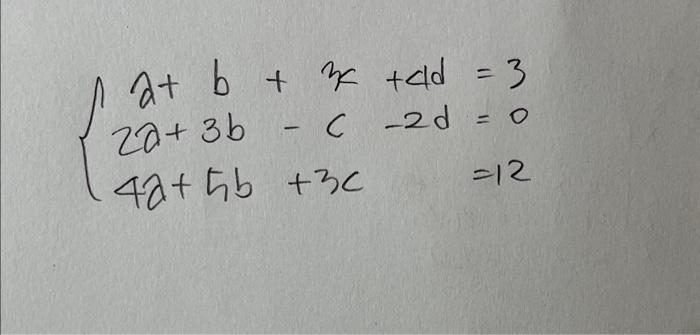 a + b + 3c + 4d = 3
2a + 3b - c - 2d = 0
4a + 5b + 3c = 12